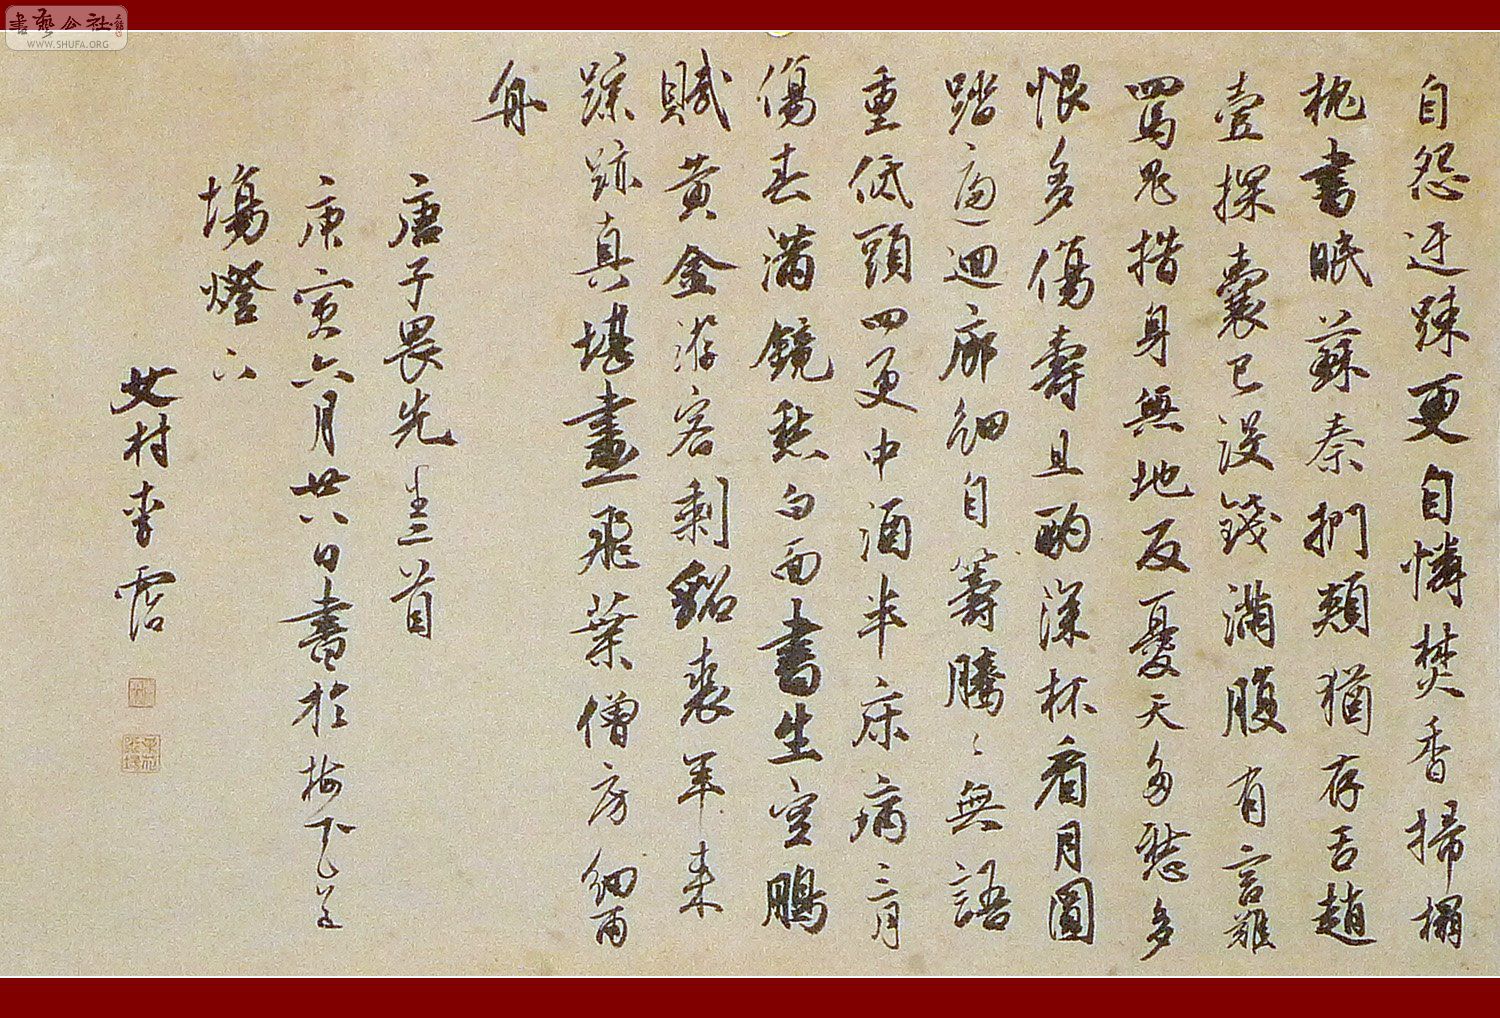 自怨迂疎更自憐焚香掃榻
枕書眠蘇秦捫頰猶存舌趙
壹探囊已沒錢滿腹有言難
罵鬼措身無地反憂天多愁多
恨多傷壽且酌深杯看月圓
踏遍迴廊細自籌騰〻無語
重低頭四更中酒半床病三月
傷春滿鏡愁白面書生空鵩
賦黃金游客剩貂裘年來
蹤跡真堪畫飛葉僧房細雨
舟
唐子畏先生二首
庚寅六月廿八日書於梅下
塲燈下
艾村李霑
書藝公社
WWW.SHUFA.ORG